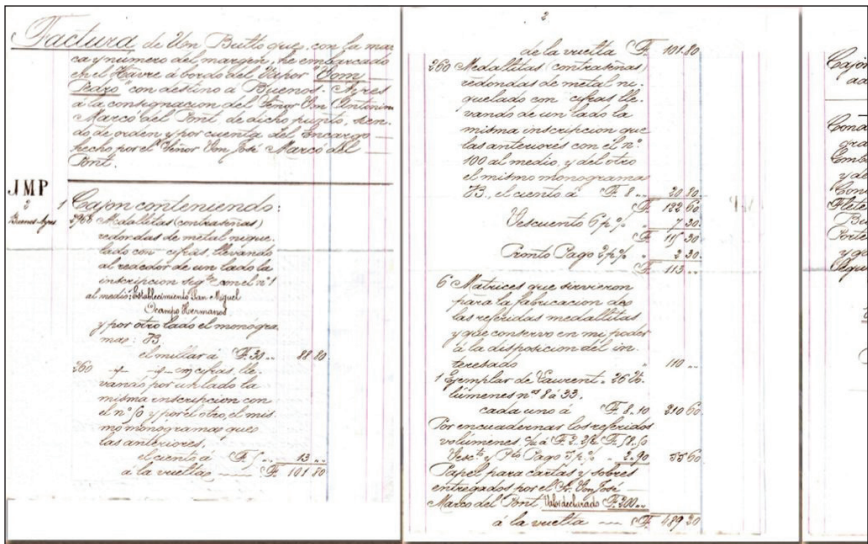 Factura de Un Bulto que, con la mar
ca y numero del margen, he embarcado
en el Havre a bordo del Vapor "Dom
Pedro" con destino a Buenos-Ayres
a la consignacion del Señor Don Antonino
Marcó del Pont de dicho punto, sien
do de orden y por cuenta del Encargo
hecho por el Señor Don José Marcó del
Pont.
JMP
2
Buenos-Ayres
1 Cajon conteniendo:
Medallitas (contraseñas)
redondas de metal nique
lado con cifras, llevando
al rededor de un lado la
inscripcion sigte con el nº 1
al medio: Establecimiento San Miguel
Ocampo Hermanos
y por otro lado el monogra
mas: 
el millar á F. 30 .. 88 80
260 con cifras, lle
vando por un lado la
misma inscripcion con
el nº 50 y por el otro, el mis
mo monogramas que
las anteriores.
el ciento á F. 5 .. 13 ..
á la vuelta F. 101 80
2
de la vuelta F. 101.80
260 Medallitas (contraseñas)
redondas de metal ni
quelado con cifras lle
vando de un lado la
misma inscripcion que
las anteriores con el nº
100 al medio, y del otro
el mismo monograma
el ciento á F. 8 .. 20 80
F. 122 60
Descuento 6 p% 7 30
F. 115 30
Pronto Pago 2 p% 2 30
F. 113 ..
6 Matrices que sirvieron
para la fabricacion de
las referidas medallitas
y que conservo en mi poder
á la disposicion del in
teresado 110 ..
1 Ejemplar de Laurent. 26 Vo
lúmenes nos 8 á 33.
cada uno á F. 8.10 210 60
Por encuadernar los referidos
volúmenes
Pago 5 p% 2.90 55 60
Papel para cartas y sobres
entregados por el Sr. Don José
Marco del Pont Valor declarado F. 200 ..
á la vuelta F. 489 20
Cajon